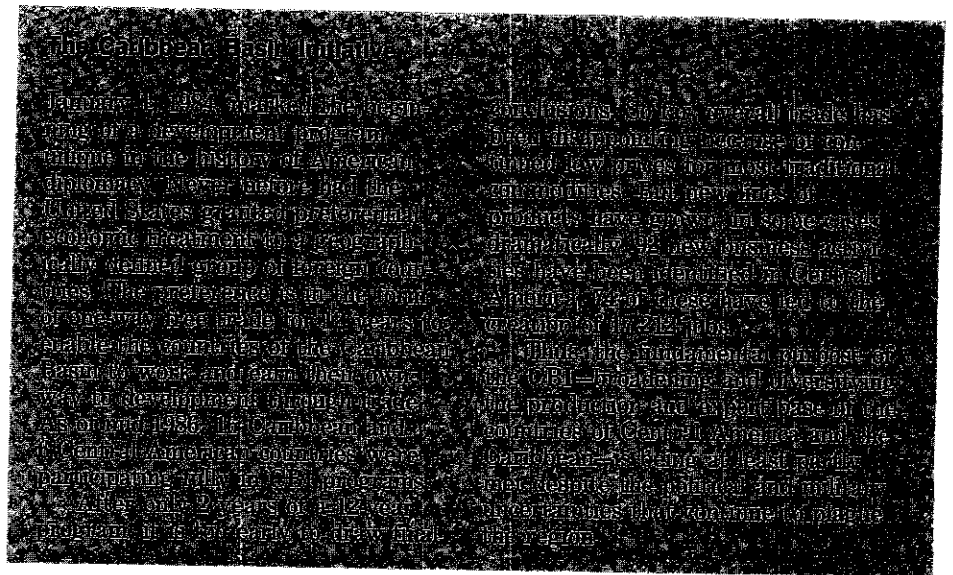 The Caribbean Basin Initiative
January 1, 1984, marked the begin-
ning of a development program
unique in the history of American
diplomacy. Never before had the
United States granted preferential
economic treatment to a geographi-
cally defined group of foreign coun-
tries. The preference is in the form
of one-way free trade for 12 years to
enable the countries of the Caribbean
Basin to work and earn their own
way to development through trade.
As of 1986, Caribbean and
Central American countries were
participating fully in CBI programs.
After only 2 years of a 12-year
program, it is too early to draw final
conclusions. So far, overall trade has
been disappointing because of con-
tinued low prices for most traditional
commodities. But new lines of
products have grown, in some cases
dramatically. 92 new business activi-
ties have been identified in Central
America; of these have led to the
creation of 17,212 jobs.
Thus, the fundamental purpose of
the CBI—broadening and diversifying
the production and export base of the
countries of Central America and the
Caribbean—is being at least partly
met, despite the political and military
uncertainties that continue to plague
the region.